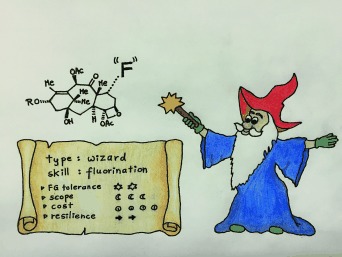 OAc
O
"F"
Me
Me
Me
RO
OH
H
O
OAc
type : wizard
skill : fluorination
FG tolerance
scope
cost
resilience